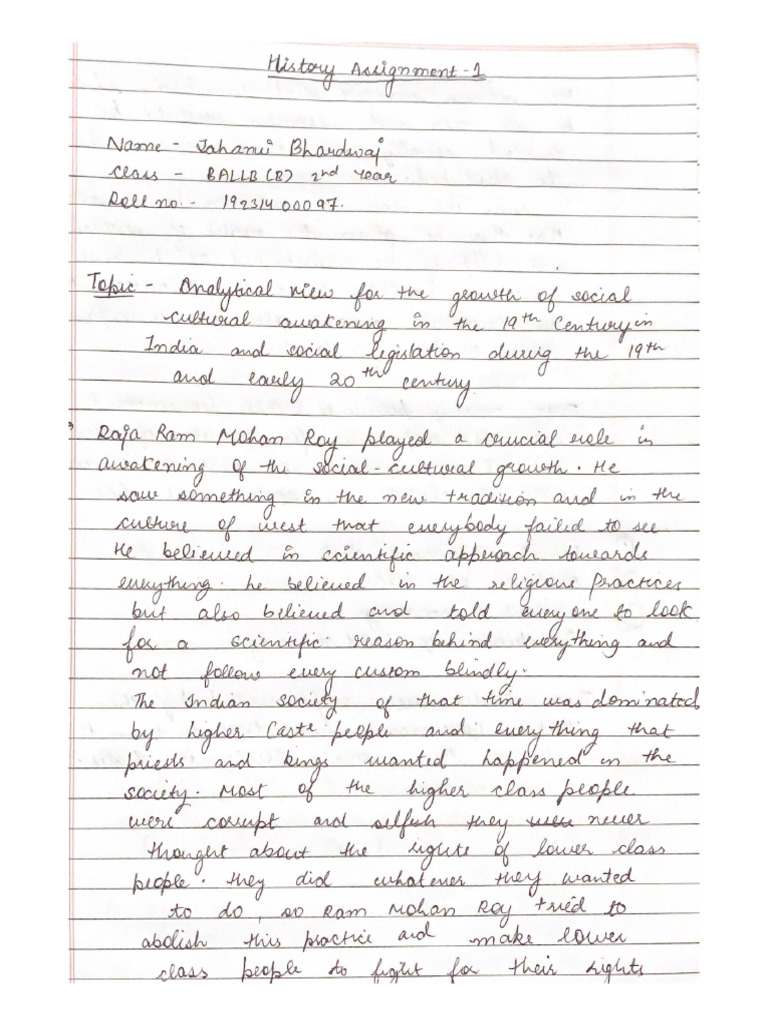 History Assignment-1
Name - Jahanvi Bhardwaj
Class - BALLB(B) 2nd Year.
Roll no. - 19231400097.
Topic - Analytical view for the growth of social
cultural awakening in the 19th Century in
India and social legislation during the 19th
and early 20th century.
Raja Ram Mohan Roy played a crucial role in
awakening of the social-cultural growth. He
saw something in the new tradition and in the
culture of west that everybody failed to see
He believed in scientific approach towards
everything. he believed in the religious practices
but also believed and told everyone to look
for a scientific reason behind everything and
not follow every custom blindly.
The Indian society of that time was dominated
by higher Caste people and everything that
priests and kings wanted happened in the
society. Most of the higher class people
were corrupt and selfish they were never
thought about the rights of lower class
people. they did whatever they wanted
to do, so Ram Mohan Roy tried to
abolish this practice and make lower
class people to fight for their rights